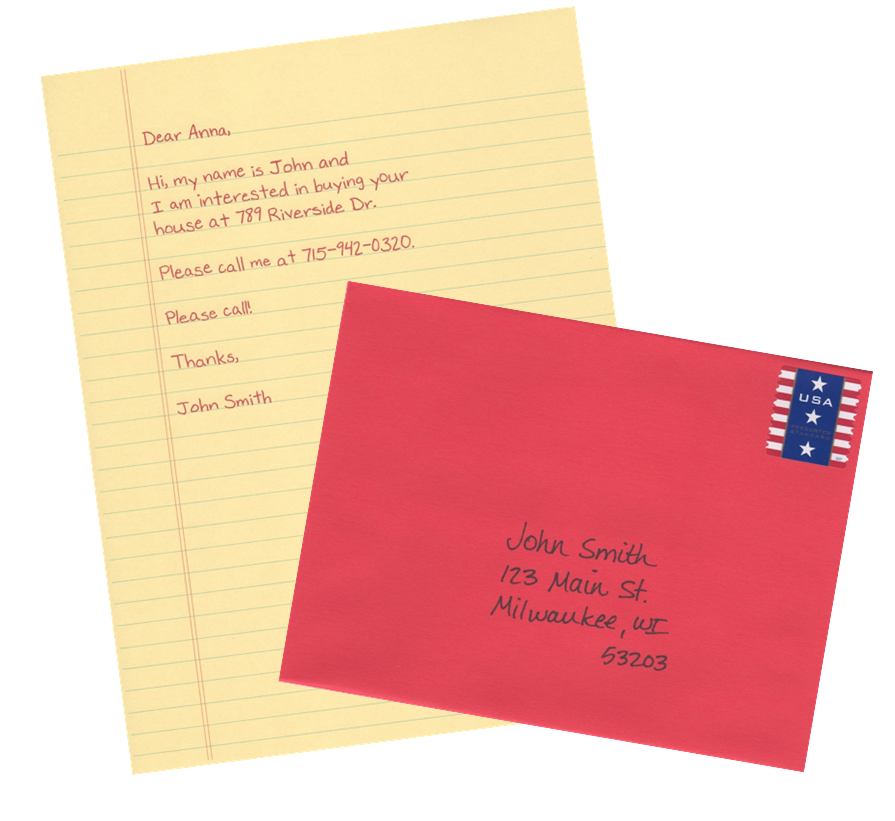 Dear Anna,
Hi, my name is John and
I am interested in buying your
house at 789 Riverside Dr.
Please call me at 715-942-0320.
Please call!
Thanks,
John Smith
USA
John Smith
123 Main St.
Milwaukee, WI
53203